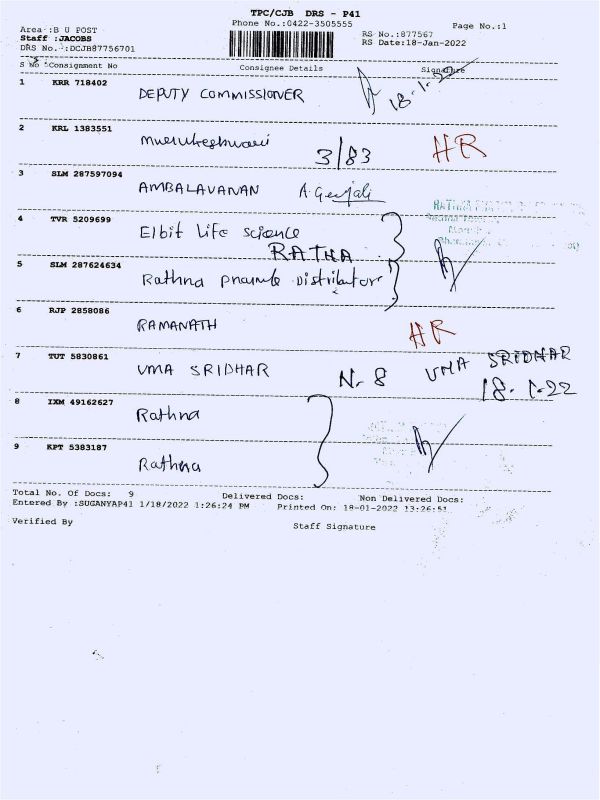 TPC/CJB DRS - P41
Phone No.:0422-3505555
Page No.:1
Area :B U POST
Staff :JACOBS
DRS No. :DCJB87756701
RS No.:877567
RS Date:18-Jan-2022
S No Consignment No Consignee Details Signature
1 KRR 718402 DEPUTY COMMISSIONER
2 KRL 1383551 3/83 HR
3 SLM 287597094 AMBALAVANAN
4 TVR 5209699 Elbit Life science
RATHA
5 SLM 287624634 Rathna Distributor
6 RJP 2858086 RAMANATH HR
7 TUT 5830861 UMA SRIDHAR N. 8 UMA SRIDHAR
18.1.22
8 IXM 49162627 Rathna
9 KPT 5383187 Rathna
Total No. Of Docs: 9 Delivered Docs: Non Delivered Docs:
Entered By :SUGANYAP41 1/18/2022 1:26:24 PM Printed On: 18-01-2022 13:26:51
Verified By Staff Signature